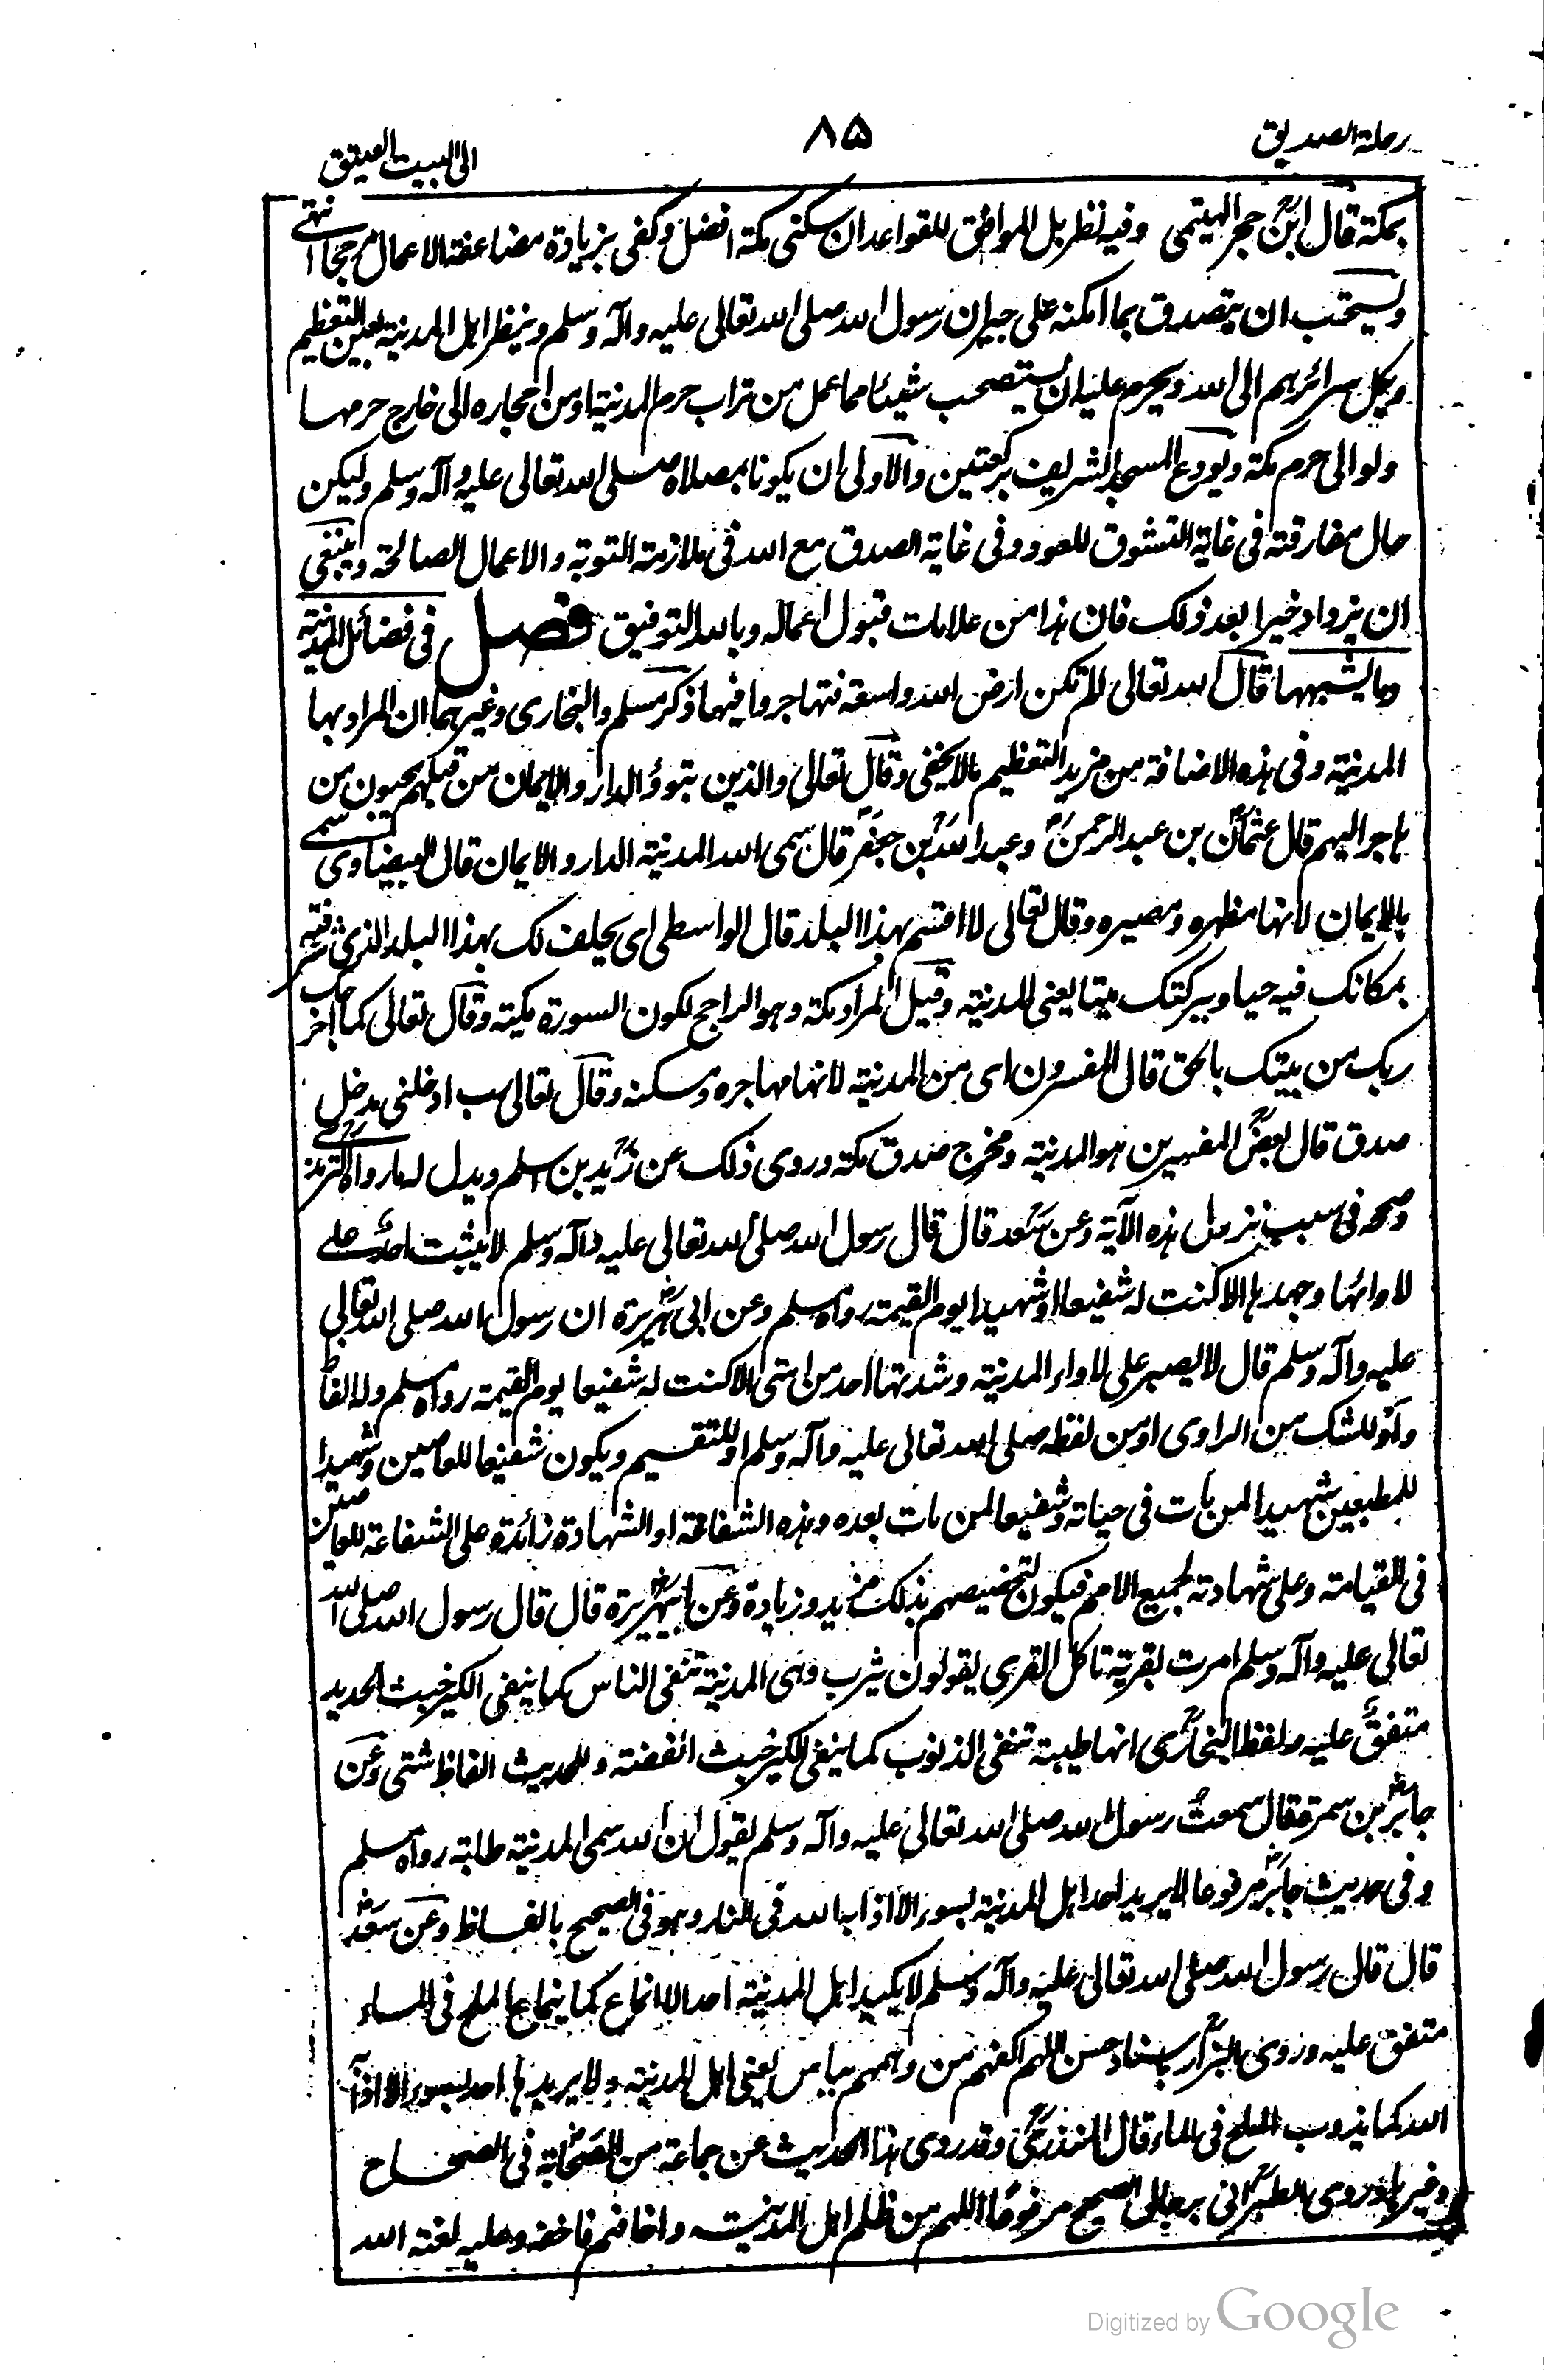 رحلة الصديق
٨٥
الى البيت العتيق
بمكة قال ابن حجر الهيتمى وفيه نظر بل الموافق للقواعد ان سكنى مكة افضل وكفى بزيادة مضاعفة الاعمال مرجحا انتهى
ويستحب ان يتصدق بما امكنه على جيران رسول الله صلى الله تعالى عليه وآله وسلم وينظر اهل المدينة بعين التعظيم
ويكل سرائرهم الى الله ويحرم عليه ان يستصحب شيئا مما عمل من تراب حرم المدينة او من احجاره الى خارج حرمها
ولو الى حرم مكة ويودع المسجد الشريف بركعتين والاولى ان يكونا بمصلاه صلى الله تعالى عليه وآله وسلم وليكن
حال مفارقته فى غاية التشوق للعود وفى غاية الصدق مع الله فى ملازمة التوبة والاعمال الصالحة وينبغى
ان يزداد خيرا بعد ذلك فان هذا من علامات قبول اعماله وبالله التوفيق فصل فى فضائل المدينة
وما يشبهها قال الله تعالى الم تكن ارض الله واسعة فتهاجروا فيها ذكر مسلم والبخارى وغيرهما ان المراد بها
المدينة وفى هذه الاضافة من مزيد التعظيم مالا يخفى وقال تعالى والذين تبوؤ الدار والايمان من قبلهم يحبون من
هاجر اليهم قال عثمان بن عبد الرحمن وعبد الله بن جعفر قال سمى الله المدينة الدار والايمان قال البيضاوى سمى
بالايمان لانها مظهره ومصيره وقال تعالى لا اقسم بهذا البلد قال الواسطى اى يحلف لك بهذا البلد الذى شرفته
بمكانك فيه حيا وببركتك ميتا يعنى المدينة وقيل المراد مكة وهو الراجح لكون السورة مكية وقال تعالى كما اخرجك
ربك من بيتك بالحق قال المفسرون اى من المدينة لانها مهاجره ومسكنه وقال تعالى رب ادخلنى مدخل
صدق قال بعض المفسرين هو المدينة ومخرج صدق مكة وروى ذلك عن زيد بن اسلم ويدل له ما رواه الترمذى
وصححه فى سبب نزول هذه الآية وعن سعد قال قال رسول الله صلى الله تعالى عليه وآله وسلم لا يثبت احد على
لاوائها وجهدها الا كنت له شفيعا او شهيدا يوم القيمة رواه مسلم وعن ابى هريرة ان رسول الله صلى الله تعالى
عليه وآله وسلم قال لا يصبر على لاواء المدينة وشدتها احد من امتى الا كنت له شفيعا يوم القيمة رواه مسلم وله الفاظ
واو للشك من الراوى او من لفظه صلى الله تعالى عليه وآله وسلم او للتقسيم ويكون شفيعا للعاصين وشهيدا
للمطيعين شهيدا لمن مات فى حياته وشفيعا لمن مات بعده وهذه الشفاعة او الشهادة زائدة على الشفاعة للعاصين
فى القيامة وعلى شهادته لجميع الامم فيكون لتخصيصهم بذلك مزيد وزيادة وعن ابى هريرة قال قال رسول الله صلى الله
تعالى عليه وآله وسلم امرت بقرية تاكل القرى يقولون يثرب وهى المدينة تنفى الناس كما ينفى الكير خبث الحديد
متفق عليه ولفظ البخارى انها طيبة تنفى الذنوب كما ينفى الكير خبث الفضة وللحديث الفاظ شتى وعن
جابر بن سمرة قال سمعت رسول الله صلى الله تعالى عليه وآله وسلم يقول ان الله سمى المدينة طابة رواه مسلم
وفى حديث جابر مرفوعا لا يريد احد اهل المدينة بسوء الا اذابه الله فى النار وهو فى الصحيح بالفاظ وعن سعد
قال قال رسول الله صلى الله تعالى عليه وآله وسلم لا يكيد اهل المدينة احد الا انماع كما ينماع الملح فى الماء
متفق عليه وروى البزار باسناد حسن اللهم اكفهم من دهمهم بباس يعنى اهل المدينة ولا يريدها احد بسوء الا اذابه
الله كما يذوب الملح فى الماء قال المنذرى وقد روى هذا الحديث عن جماعة من الصحابة فى الصحاح
وغيرها وروى الطبرانى برجال الصحيح مرفوعا اللهم من ظلم اهل المدينة واخافهم فاخفه وعليه لعنة الله
Digitized by Google